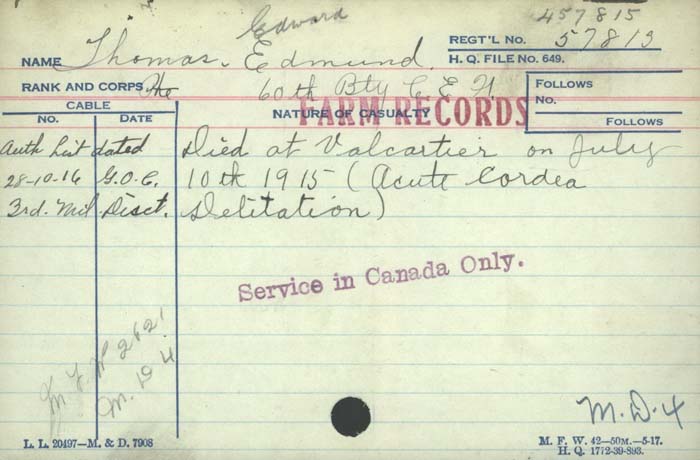 Edward 457815
NAME Thomas. Edmund. REGT'L NO. 57813
H. Q. FILE NO. 649.
RANK AND CORPS Pte 60th Bty C. E. F. FOLLOWS
CABLE NATURE OF CASUALTY FARM RECORDS No.
NO. DATE FOLLOWS
Auth List dated Died at Valcartier on July
28-10-16 G.O.C. 10th 1915 (Acute Cordea
3rd. Mil Disct. Delitation)
Service in Canada Only.
M. F. W 2621
M. D 4
M. D. 4
L. L. 20497—M. & D. 7908 M. F. W. 42—50M.—5-17.
H. Q. 1772-39-893.